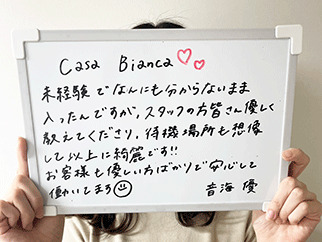 Casa Bianca♡♡
未経験でなんにも分からないまま
入ったんですが、スタッフの方皆さん優しく
教えてくださり、待機場所も想像
して以上に綺麗です!!
お客様も優しい方ばかりで安心して
働いてます☺
音海 優